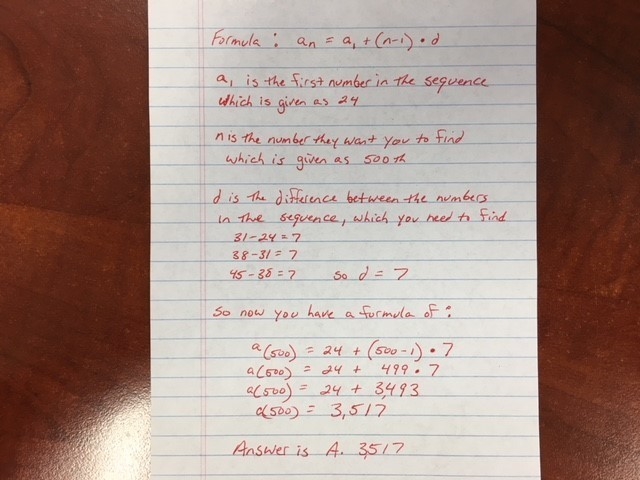 Formula: an = a1 + (n-1) • d
a1 is the first number in the sequence
which is given as 24
n is the number they want you to find
which is given as 500th
d is the difference between the numbers
in the sequence, which you need to find
31-24=7
38-31=7
45-38=7 so d = 7
So now you have a formula of:
a(500) = 24 + (500-1) • 7
a(500) = 24 + 499 • 7
a(500) = 24 + 3,493
a(500) = 3,517
Answer is A. 3,517